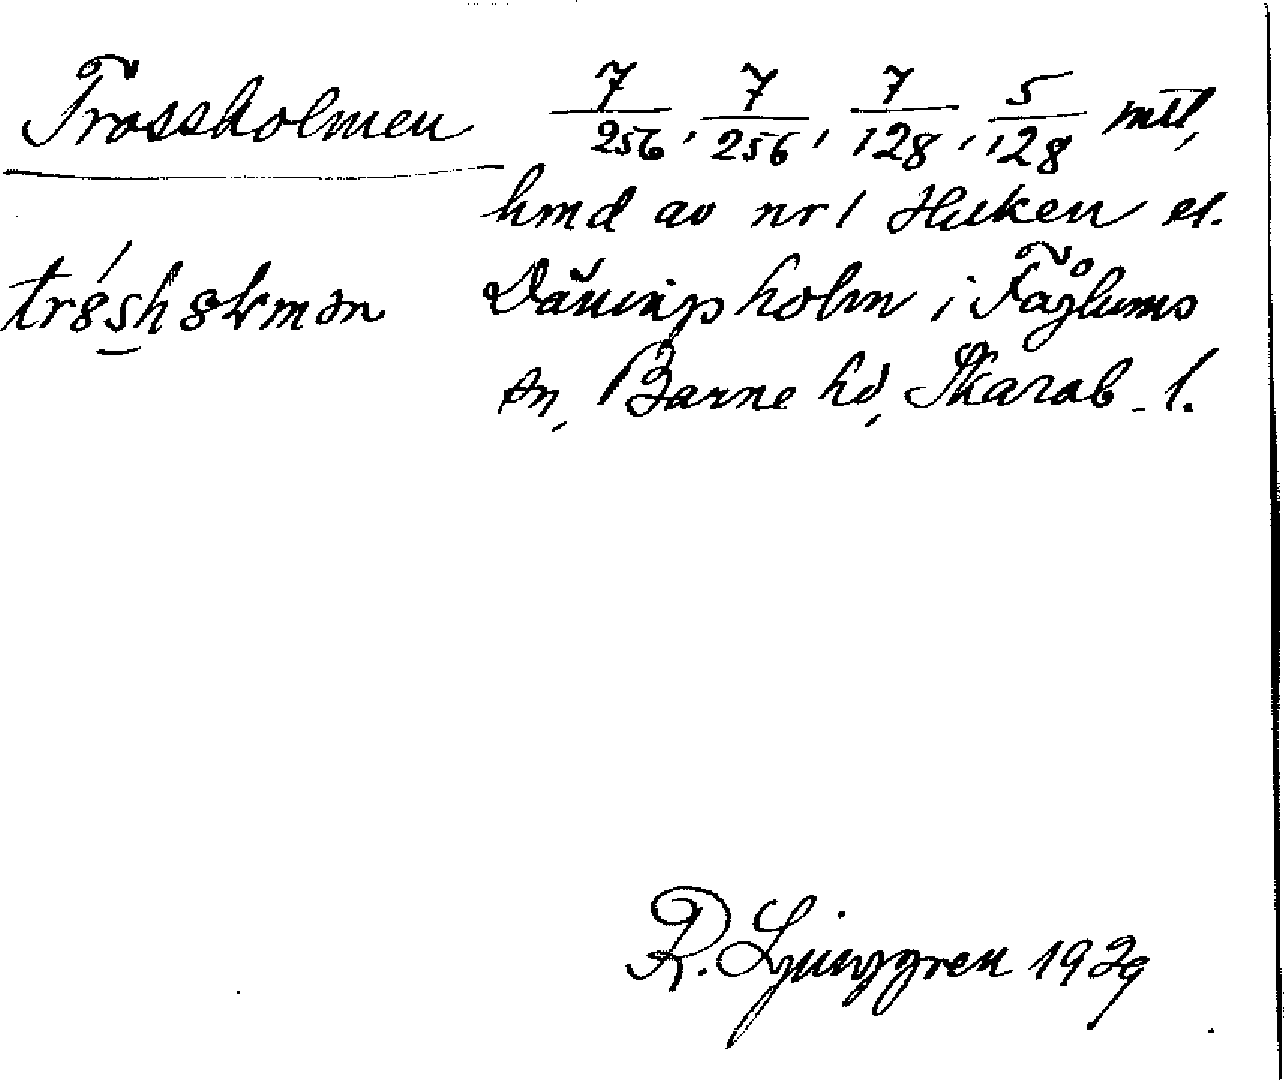 Trossholmen 7/256, 7/256, 7/128, 5/128 mtl,
hmd av nr 1 Huken el.
Däningsholm i Fåglums
sn, Barne hd, Skarab. l.
R. Ljunggren 1929